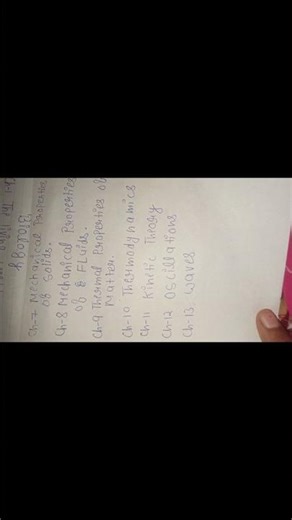 Biology
Ch-7 Mechanical Properties
of Solids.
Ch-8 Mechanical Properties
of & Fluids.
Ch-9 Thermal Properties of
Matter.
Ch-10 Thermodynamics
Ch-11 Kinetic Theory
Ch-12 Oscillations
Ch-13 Waves